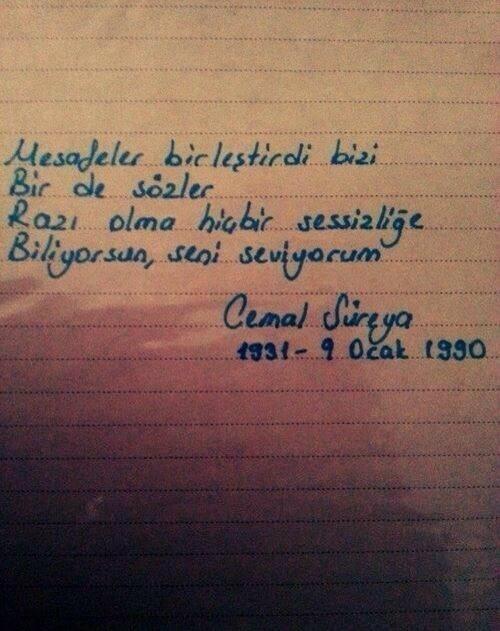 Mesafeler birleştirdi bizi
Bir de sözler
Razı olma hiçbir sessizliğe
Biliyorsun, seni seviyorum
Cemal Süreya
1931 - 9 Ocak 1990